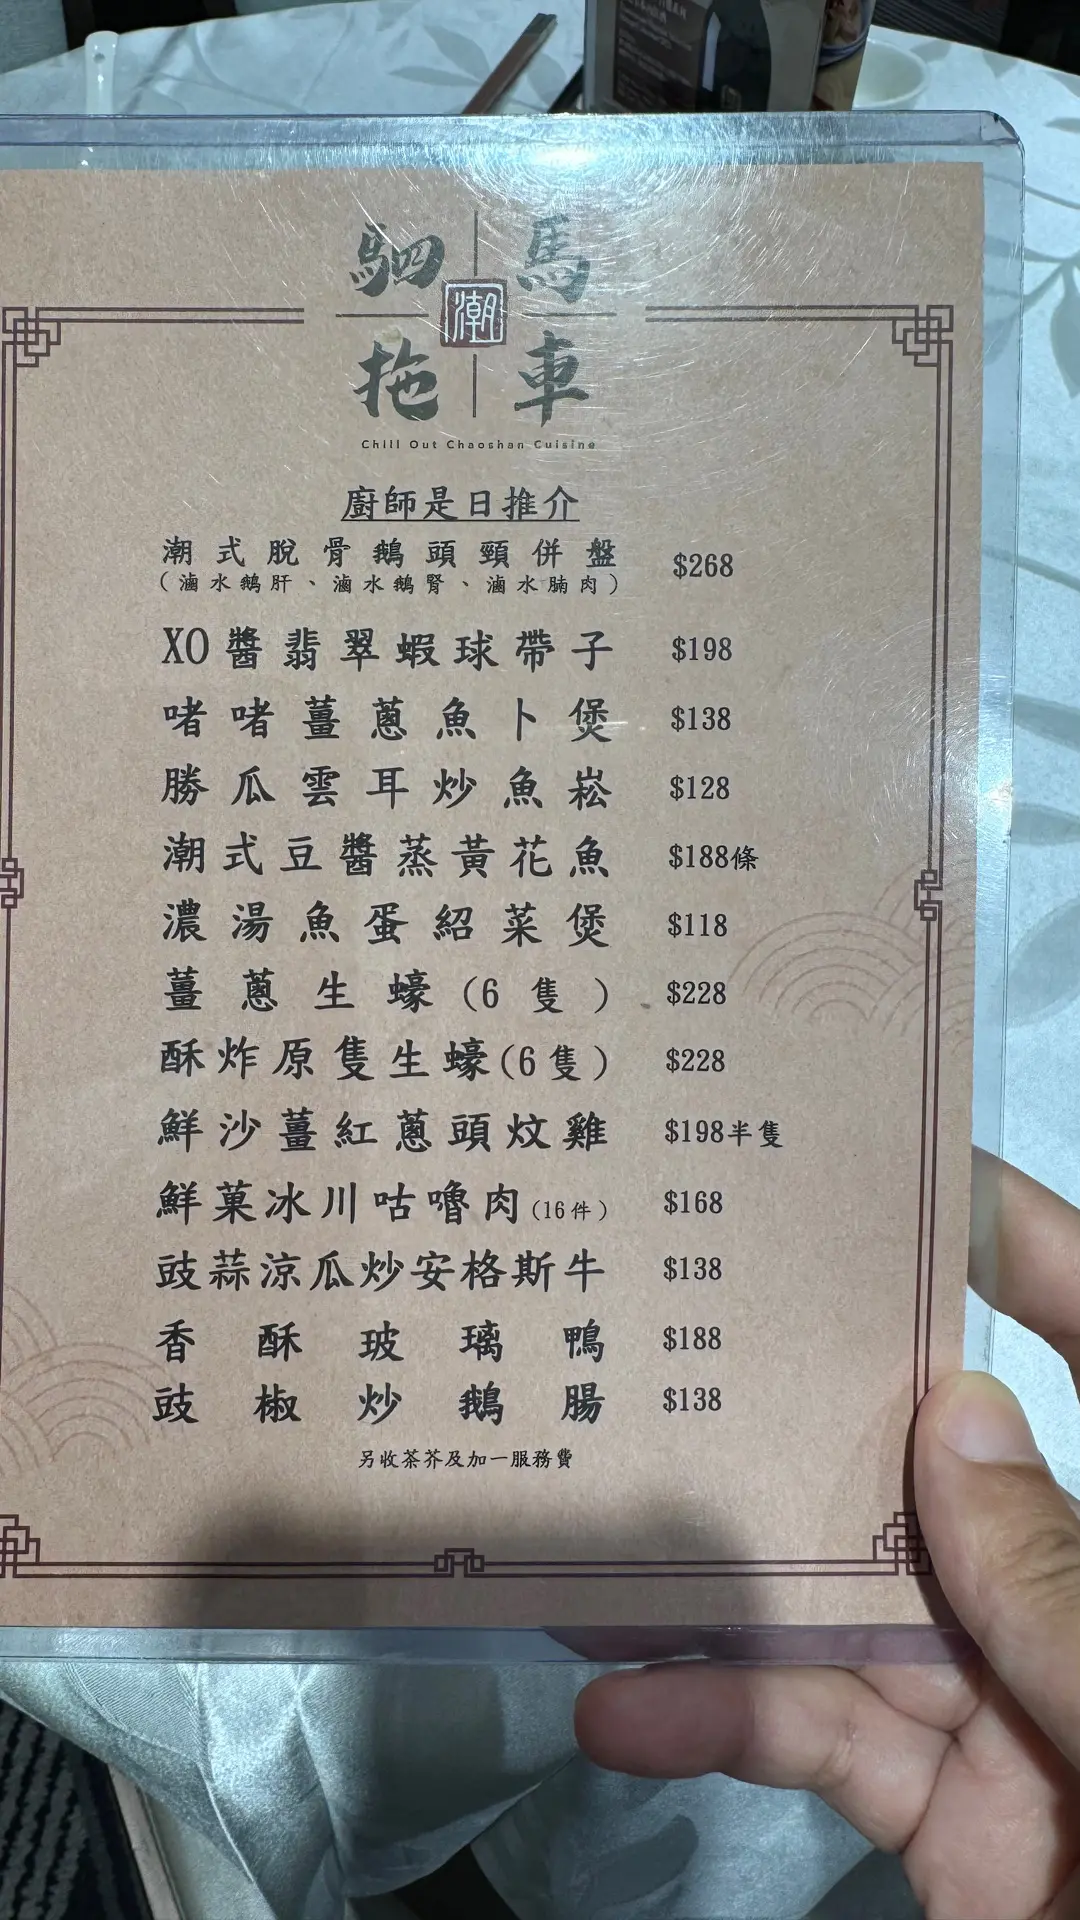 駟馬
潮
拖車
Chill Out Chaoshan Cuisine
廚師是日推介
潮式脫骨鵝頭頸併盤 $268
(滷水鵝肝、滷水鵝腎、滷水腩肉)
XO醬翡翠蝦球帶子 $198
啫啫薑蔥魚卜煲 $138
勝瓜雲耳炒魚崧 $128
潮式豆醬蒸黃花魚 $188條
濃湯魚蛋紹菜煲 $118
薑蔥生蠔(6隻) $228
酥炸原隻生蠔(6隻) $228
鮮沙薑紅蔥頭炆雞 $198半隻
鮮菓冰川咕嚕肉(16件) $168
豉蒜涼瓜炒安格斯牛 $138
香酥玻璃鴨 $188
豉椒炒鵝腸 $138
另收茶芥及加一服務費